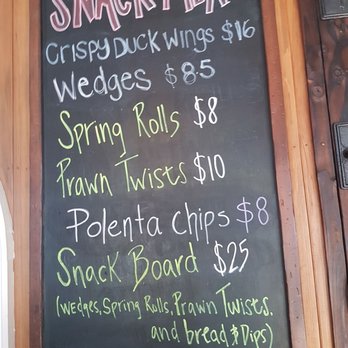 SNACK
Crispy Duck Wings $16
Wedges $8.5
Spring Rolls $8
Prawn Twists $10
Polenta Chips $8
Snack Board $25
(Wedges, Spring Rolls, Prawn Twists.
and bread & Dips)